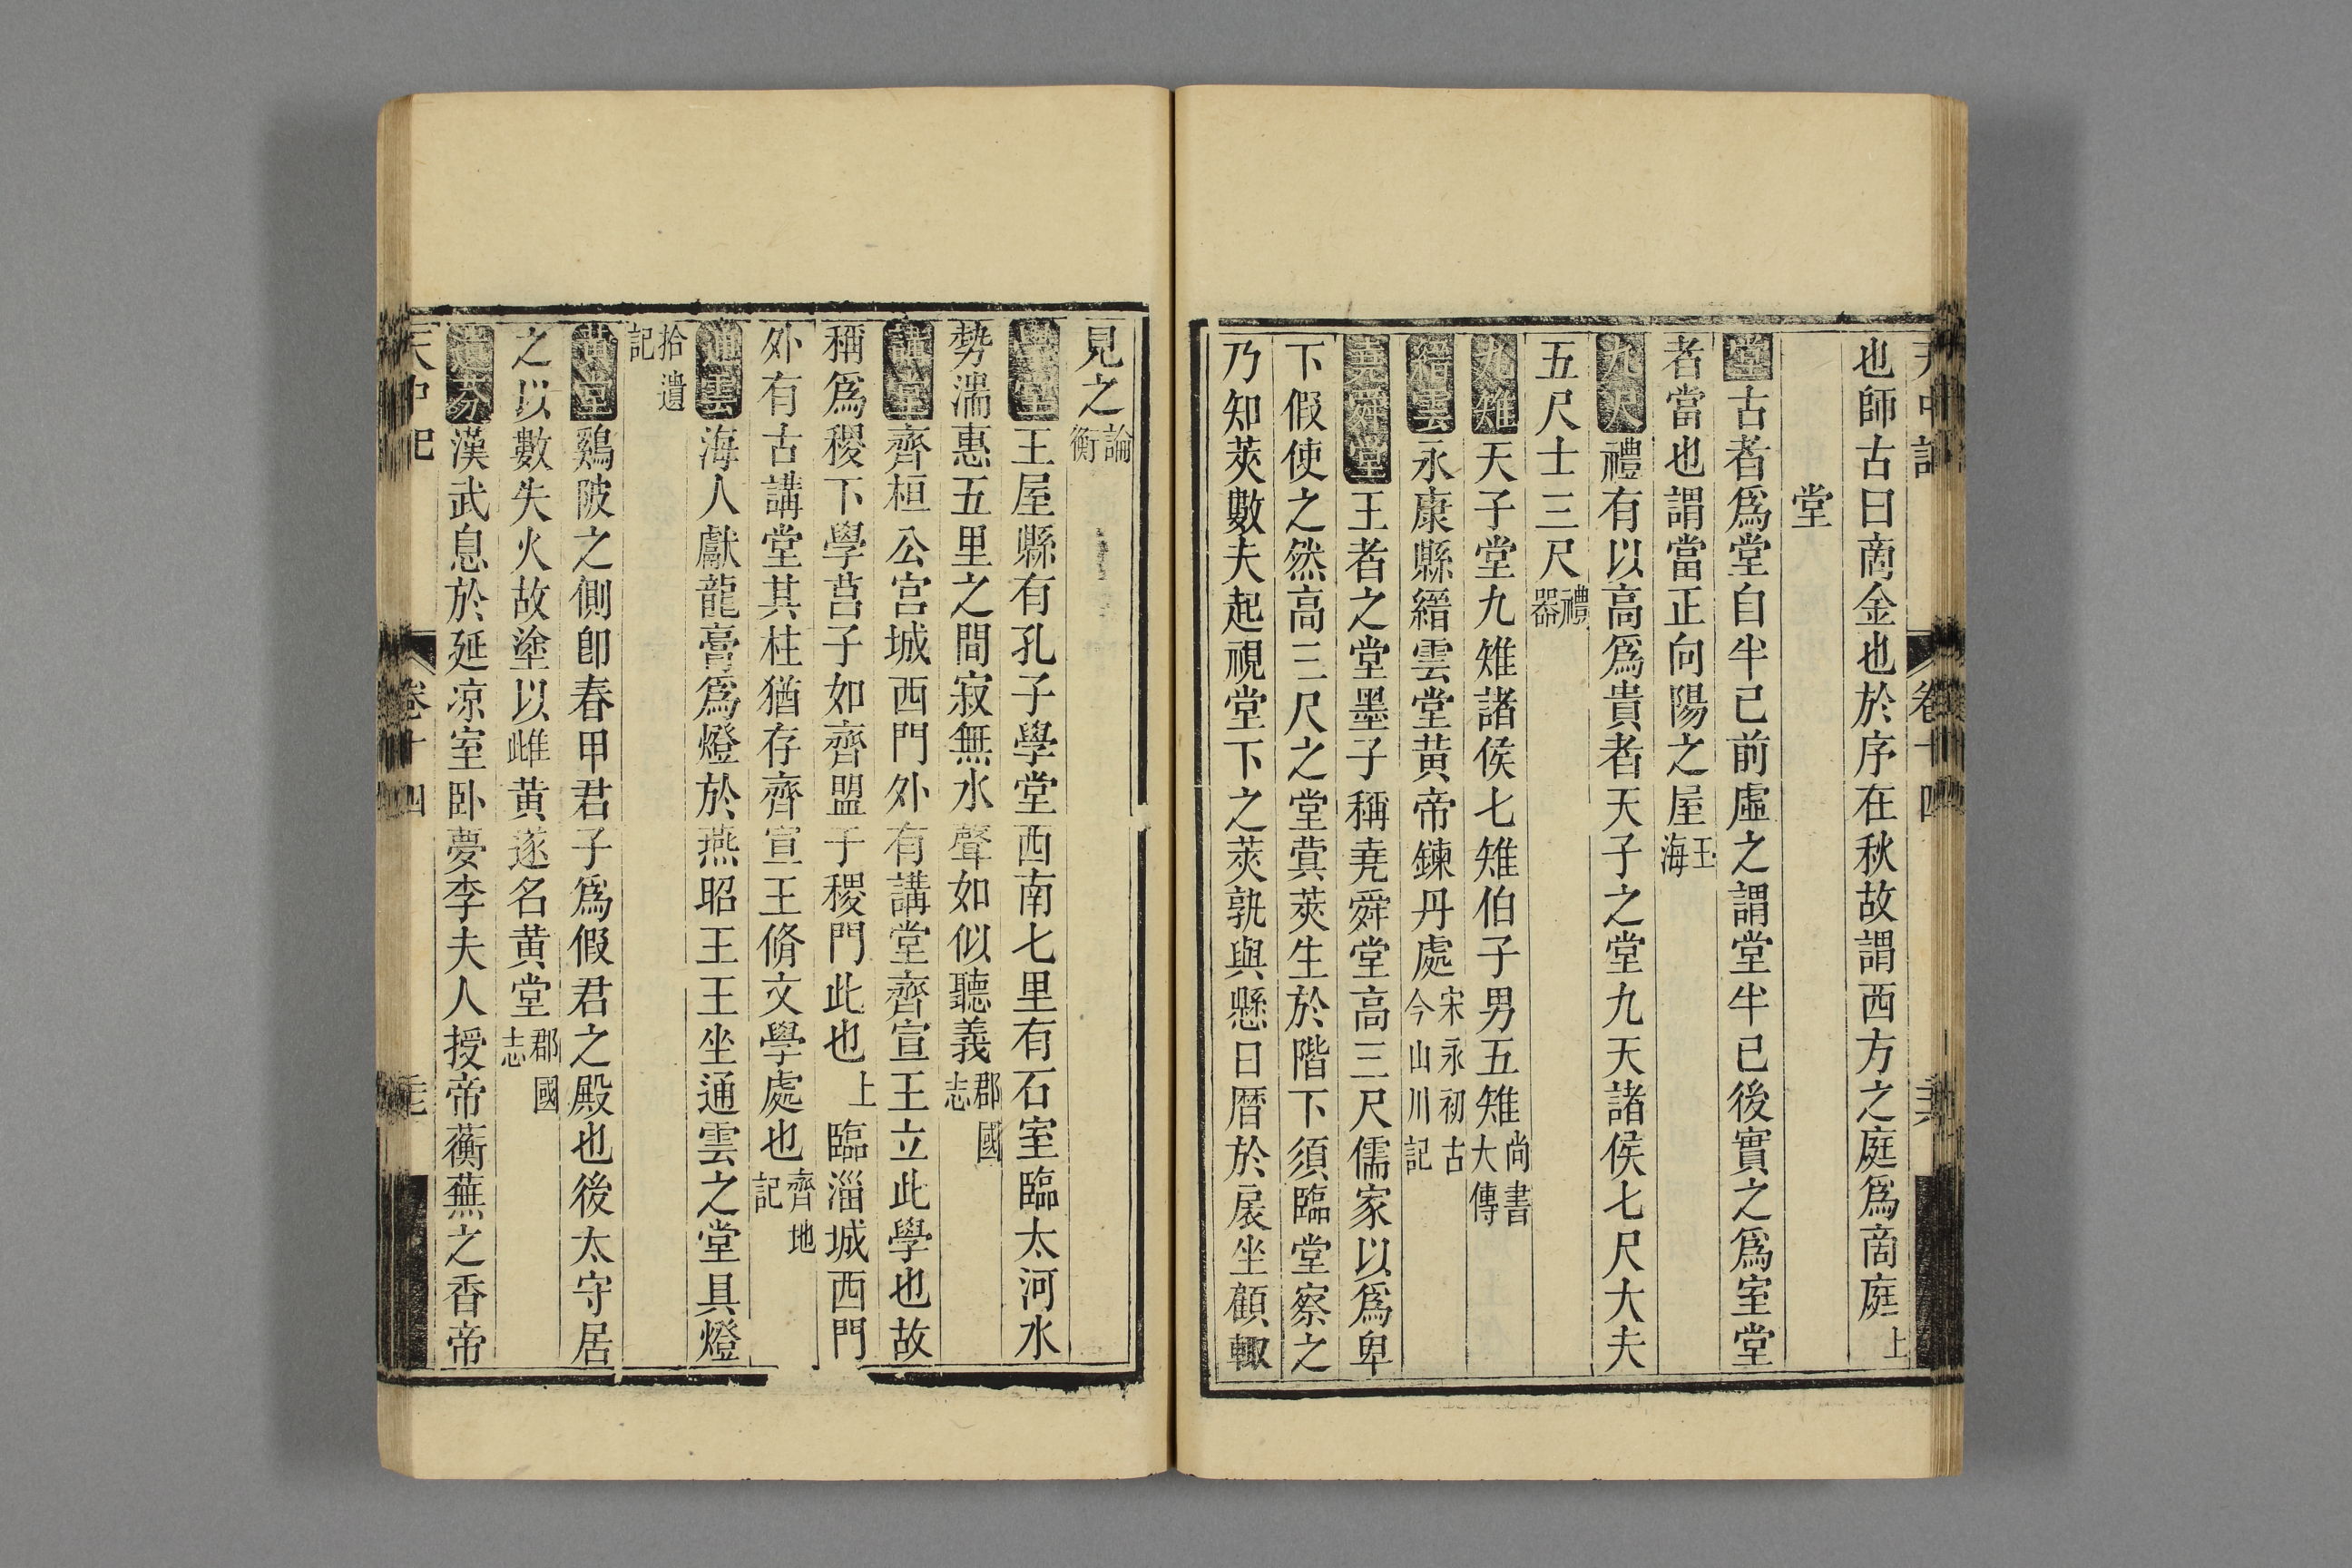 天中記 卷十四
也師古曰商金也於序在秋故謂西方之庭爲商庭上
堂
堂古者爲堂自半已前虛之謂堂半已後實之爲室堂
者當也謂當正向陽之屋玉海
九尺禮有以高爲貴者天子之堂九尺諸侯七尺大夫
五尺士三尺禮器
九雉天子堂九雉諸侯七雉伯子男五雉尚書大傳
縉雲永康縣縉雲堂黃帝鍊丹處宋永初古今山川記
堯舜堂王者之堂墨子稱堯舜堂高三尺儒家以爲卑
下假使之然高三尺之堂蓂莢生於階下須臨堂察之
乃知莢數夫起視堂下之莢孰與懸日曆於扆坐顧輙
見之論衡
學堂王屋縣有孔子學堂西南七里有石室臨太河水
勢湍惠五里之間寂無水聲如似聽義郡國志
講堂齊桓公宮城西門外有講堂齊宣王立此學也故
稱爲稷下學莒子如齊盟于稷門此也上臨淄城西門
外有古講堂其柱猶存齊宣王脩文學處也齊地記
通雲海人獻龍膏爲燈於燕昭王王坐通雲之堂具燈
拾遺記
黃堂鷄陂之側卽春申君子爲假君之殿也後太守居
之以數失火故塗以雌黃遂名黃堂郡國志
遺芬漢武息於延凉室卧夢李夫人授帝蘅蕪之香帝
天中記 卷十四